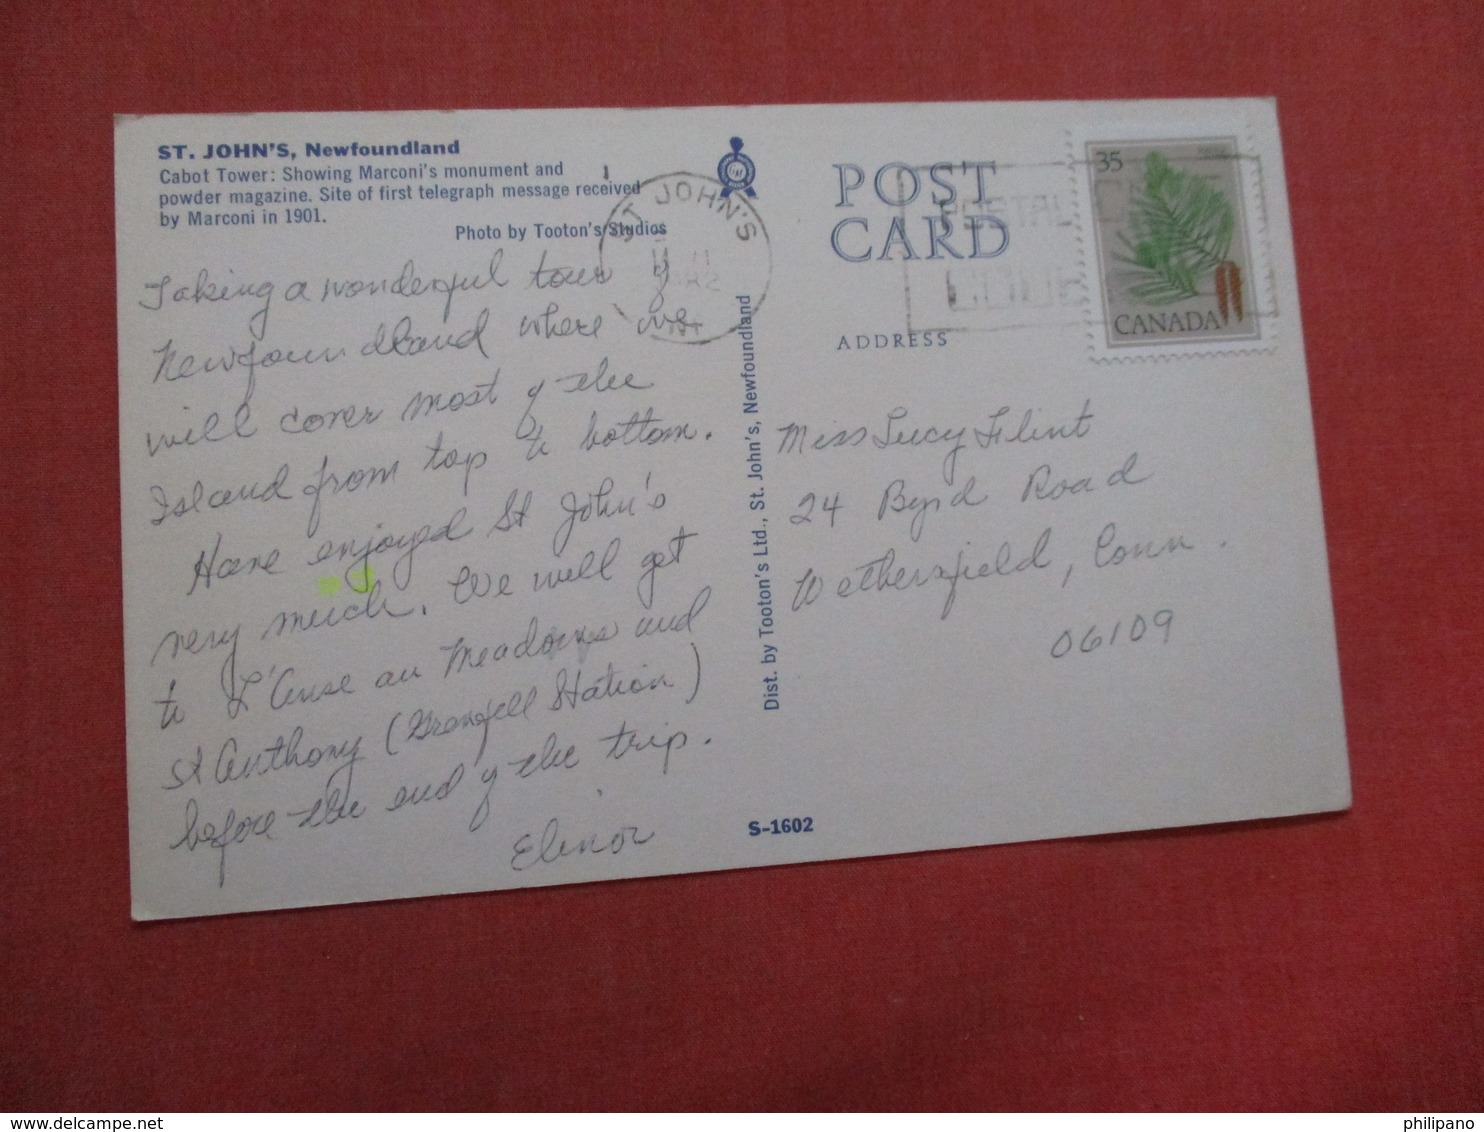 ST. JOHN'S, Newfoundland
Cabot Tower: Showing Marconi's monument and
powder magazine. Site of first telegraph message received
by Marconi in 1901.
Photo by Tooton's Studios
Taking a wonderful tour of
Newfoundland where we
will cover most of the
Island from top to bottom.
Have enjoyed St John's
very much. We will get
to L'Anse au Meadows and
St Anthony (Grenfell Station)
before the end of the trip.
Elinor
Dist. by Tooton's Ltd., St. John's, Newfoundland
S-1602
POST
CARD
ADDRESS
ST JOHN'S
POSTAL
CODE
35
CANADA
Miss Lucy Flint
24 Byrd Road
Wethersfield, Conn.
06109
www.delcampe.net
philipano